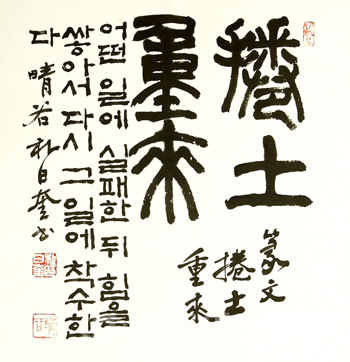 捲土
重來
篆文
捲土
重來
어떤 일에 실패한 뒤 힘을
쌓아서 다시 그 일에 착수한
다 晴谷 朴日奎 书